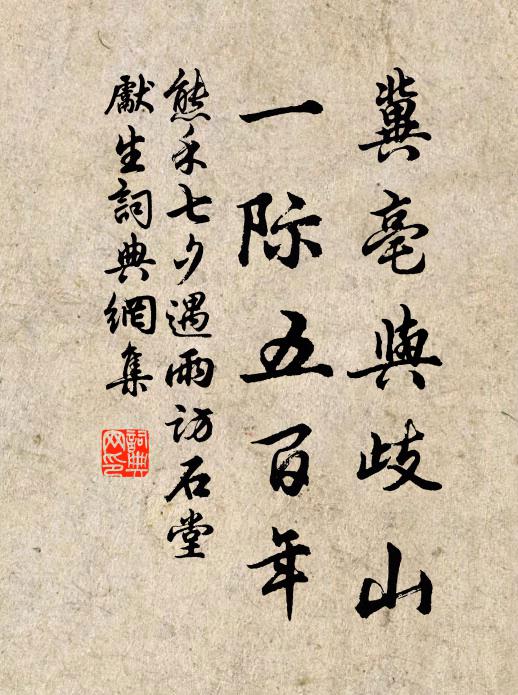 冀亳與歧山
一际五百年
熊禾七夕遇雨訪石堂
獻生詞典網集
詞典網印